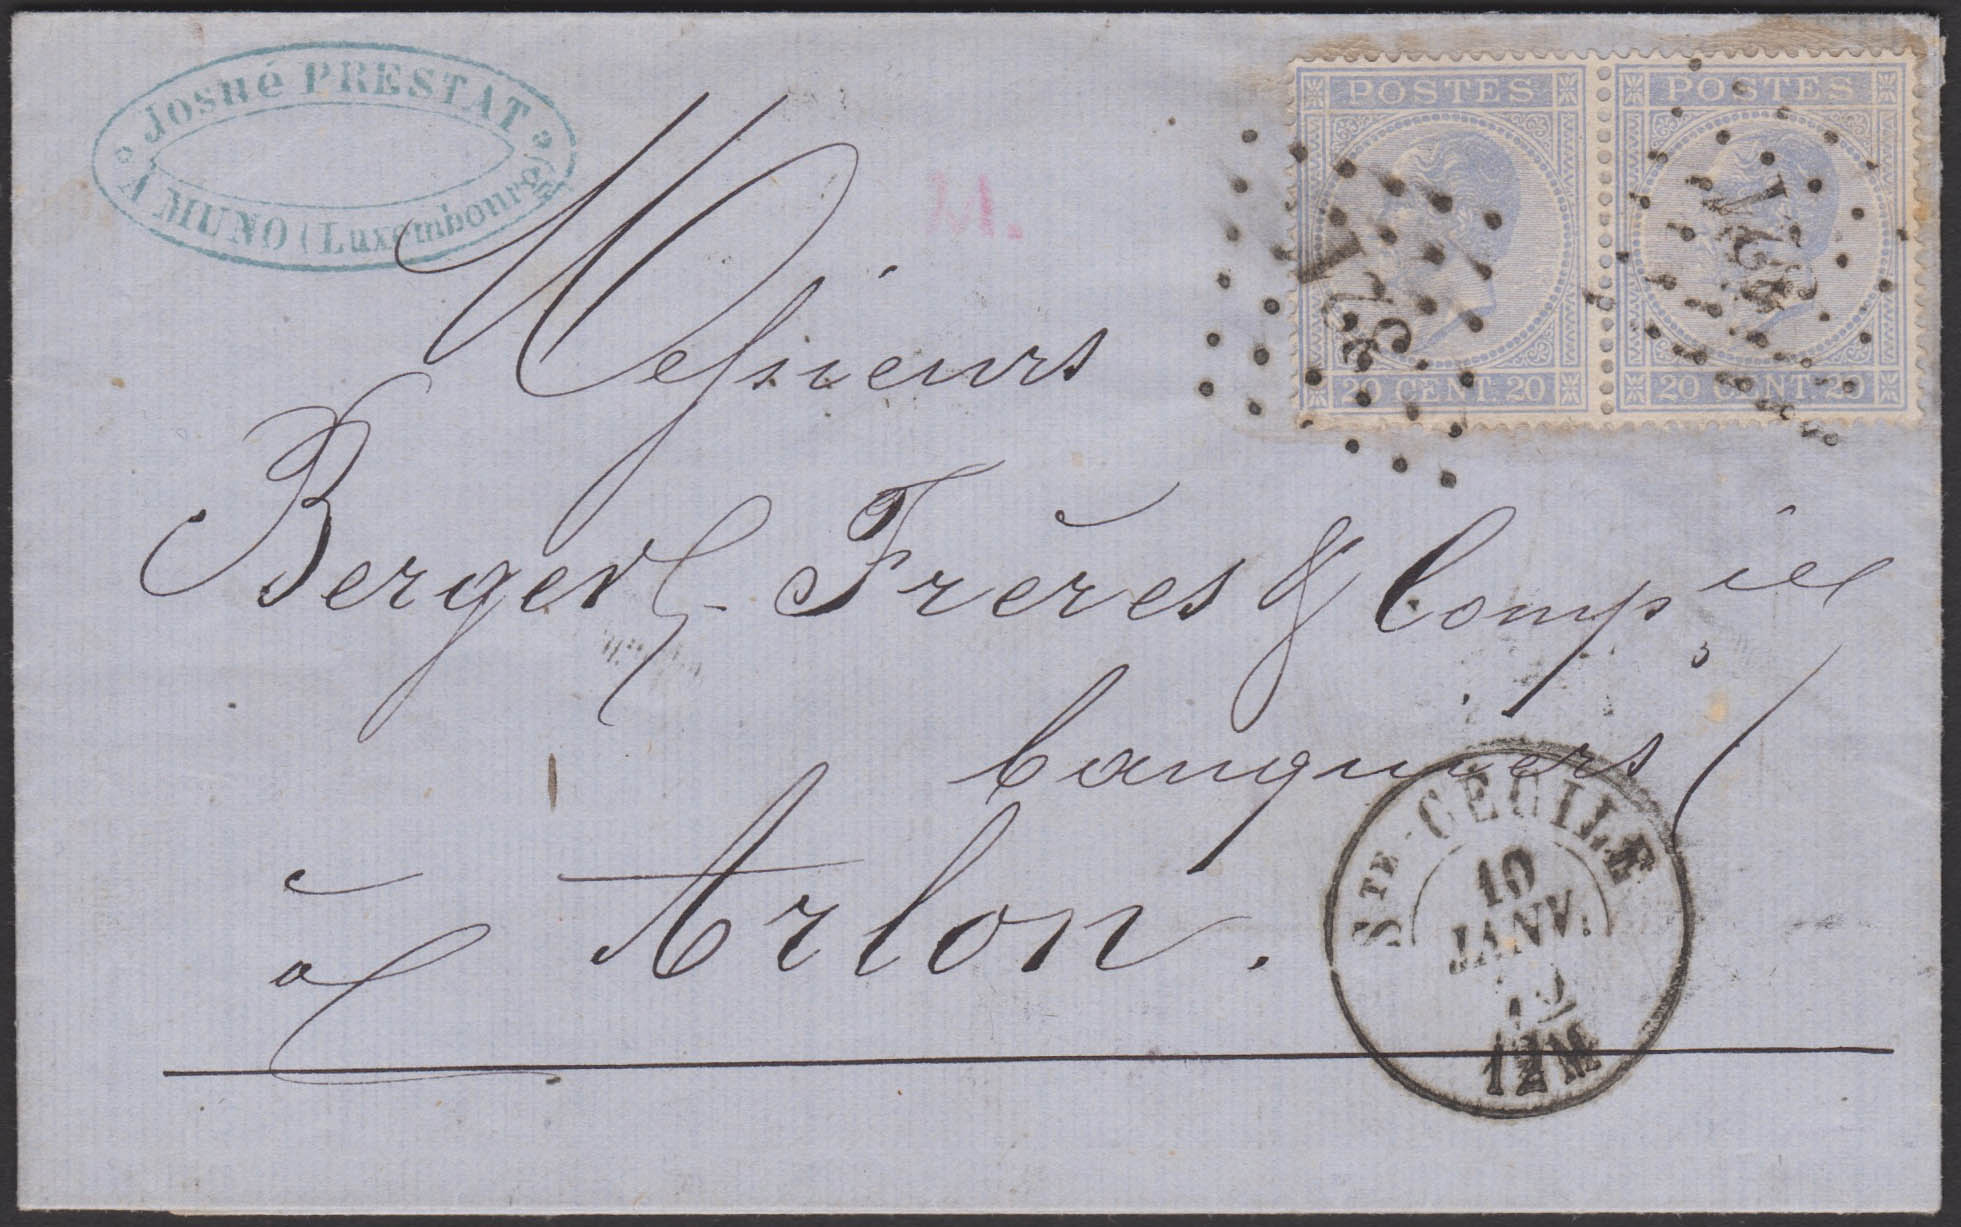 Josué PRESTAT
A MUNO (Luxembourg)
M.
POSTES
20 CENT. 20
POSTES
20 CENT. 20
Messieurs
Berger Frères & Comp.ie
banquiers
à Arlon.
STE-CÉCILE
10
JANV.
12M